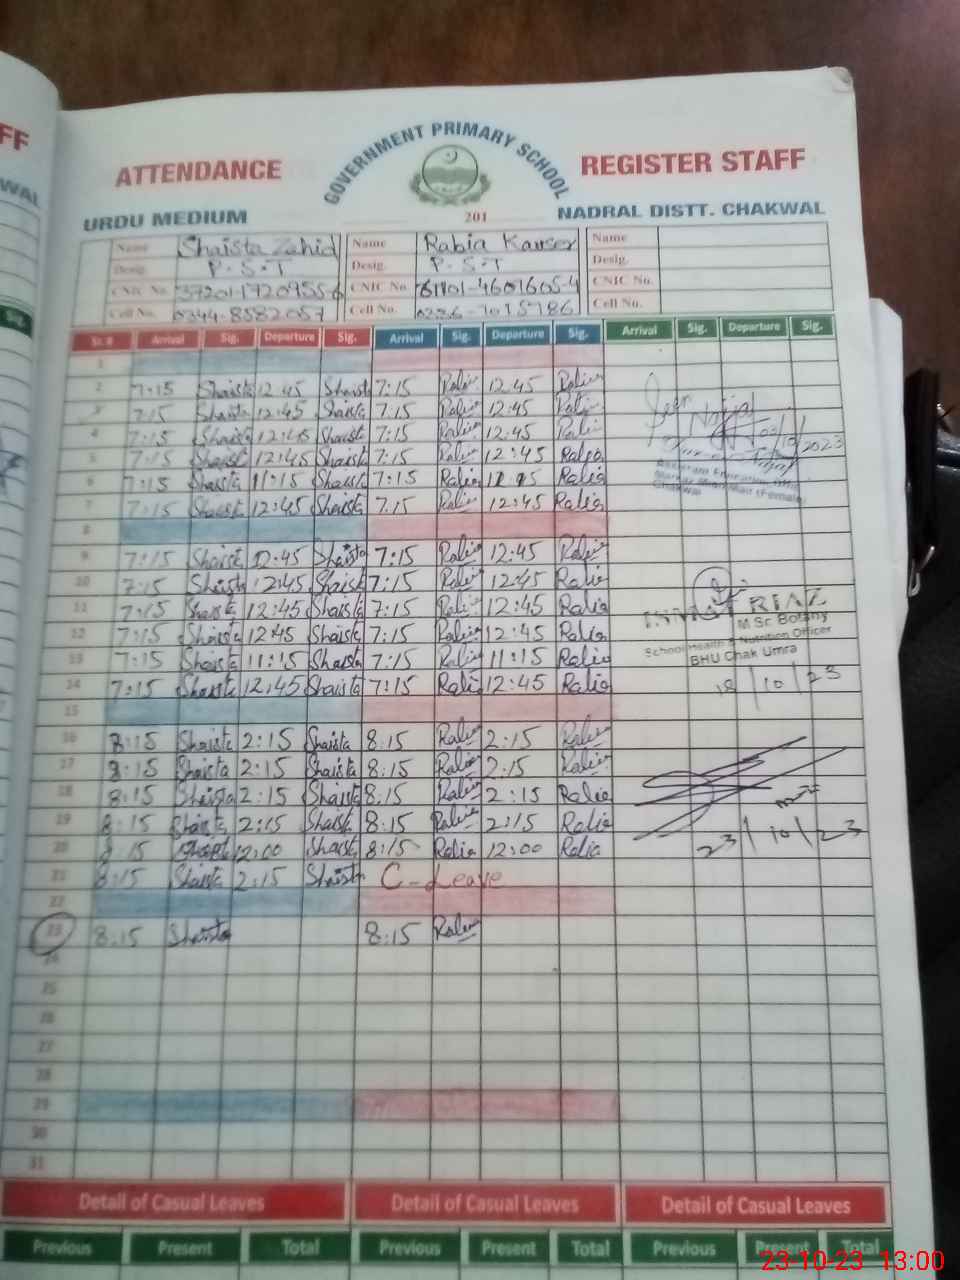 FF
WAL
Sig.
GOVERNMENT PRIMARY SCHOOL
ATTENDANCE REGISTER STAFF
URDU MEDIUM 201 NADRAL DISTT. CHAKWAL
Name Shaista Zahid Name Rabia Kauser Name
Desig. P.S.T Desig. P.S.T Desig.
CNIC No. CNIC No. CNIC No.
Cell No. 0344-8582057 Cell No. Cell No.
Sr. # Arrival Sig. Departure Sig. Arrival Sig. Departure Sig. Arrival Sig. Departure Sig.
1
2 7:15 Shaista 12:45 Shaista 7:15 Rabia 12:45 Rabia
3 7:15 Shaista 12:45 Shaista 7:15 Rabia 12:45 Rabia
4 7:15 Shaista 12:45 Shaista 7:15 Rabia 12:45 Rabia 03/10/2023
5 7:15 Shaista 12:45 Shaista 7:15 Rabia 12:45 Rabia
6 7:15 Shaista 11:15 Shaista 7:15 Rabia Rabia
7 7:15 Shaista 12:45 Shaista 7:15 Rabia 12:45 Rabia Chakwal
8
9 7:15 Shaista 12:45 Shaista 7:15 Rabia 12:45 Rabia
10 7:15 Shaista 12:45 Shaista 7:15 Rabia 12:45 Rabia
11 7:15 Shaista 12:45 Shaista 7:15 Rabia 12:45 Rabia RIAZ
12 7:15 Shaista 12:45 Shaista 7:15 Rabia 12:45 Rabia M Sc. Botany
School Health & Nutrition Officer
13 7:15 Shaista 11:15 Shaista 7:15 Rabia 11:15 Rabia BHU Chak Umra
14 7:15 Shaista 12:45 Shaista 7:15 Rabia 12:45 Rabia 18/10/23
15
16 8:15 Shaista 2:15 Shaista 8:15 Rabia 2:15 Rabia
17 8:15 Shaista 2:15 Shaista 8:15 Rabia 2:15 Rabia
18 8:15 Shaista 2:15 Shaista 8:15 Rabia 2:15 Rabia
19 8:15 Shaista 2:15 Shaista 8:15 Rabia 2:15 Rabia 23/10/23
20 8:15 Shaista 12:00 Shaista 8:15 Rabia 12:00 Rabia
21 8:15 Shaista 2:15 Shaista C-Leave
22
23 8:15 Shaista 8:15 Rabia
24
25
26
27
28
29
30
31
Detail of Casual Leaves Detail of Casual Leaves Detail of Casual Leaves
Previous Present Total Previous Present Total Previous Present Total
23-10-23 13:00